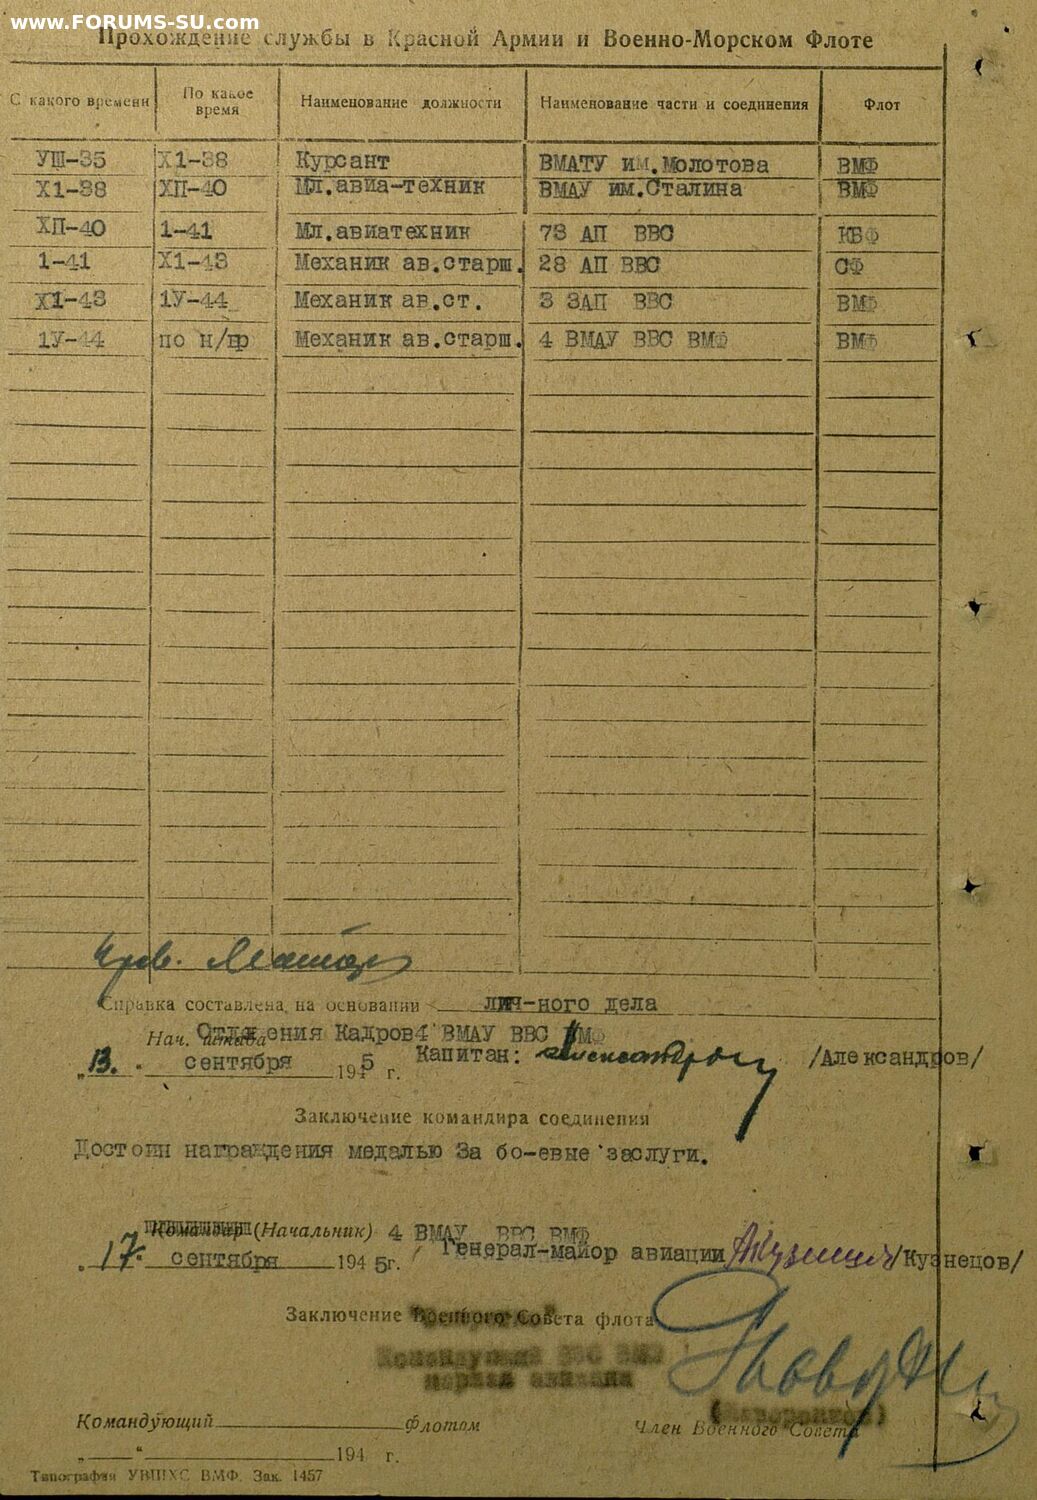 www.FORUMS-SU.com
Прохождение службы в Красной Армии и Военно-Морском Флоте
С какого времени | По какое время | Наименование должности | Наименование части и соединения | Флот
УШ-35 | Х1-38 | Курсант | ВМАТУ им.Молотова | ВМФ
Х1-38 | ХП-40 | Мл.авиа-техник | ВМАУ им.Сталина | ВМФ
ХП-40 | 1-41 | Мл.авиатехник | 73 АП ВВС | КБФ
1-41 | Х1-43 | Механик ав.старш. | 28 АП ВВС | СФ
Х1-43 | 1У-44 | Механик ав.ст. | 3 ЗАП ВВС | ВМФ
1У-44 | по н/вр | Механик ав.старш. | 4 ВМАУ ВВС ВМФ | ВМФ
Справка составлена на основании лич-ного дела
Нач. Отделения Кадров 4 ВМАУ ВВС ВМФ
„13." сентября 1945 г. Капитан: /Александров/
Заключение командира соединения
Достоин награждения медалью За бо-евые заслуги.
Командир (Начальник) 4 ВМАУ ВВС ВМФ
„17" сентября 1945г. Генерал-майор авиации /Кузнецов/
Заключение Военного Совета флота
Командующий ВВС ВМФ
маршал авиации
(Жаворонков)
Командующий флотом Член Военного Совета
„ " 194 г.
Типография УВШХС ВМФ. Зак. 1457